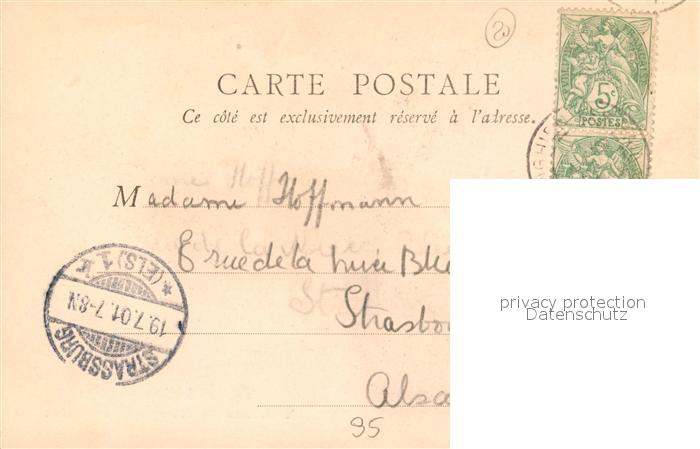 CARTE POSTALE
Ce côté est exclusivement réservé à l'adresse.
5c
POSTES
Madame Hoffmann
rue de la
Strasbo
Alsa
95
STRASSBURG
* (ELS) 1 k
19.7.01.7-8N
privacy protection
Datenschutz